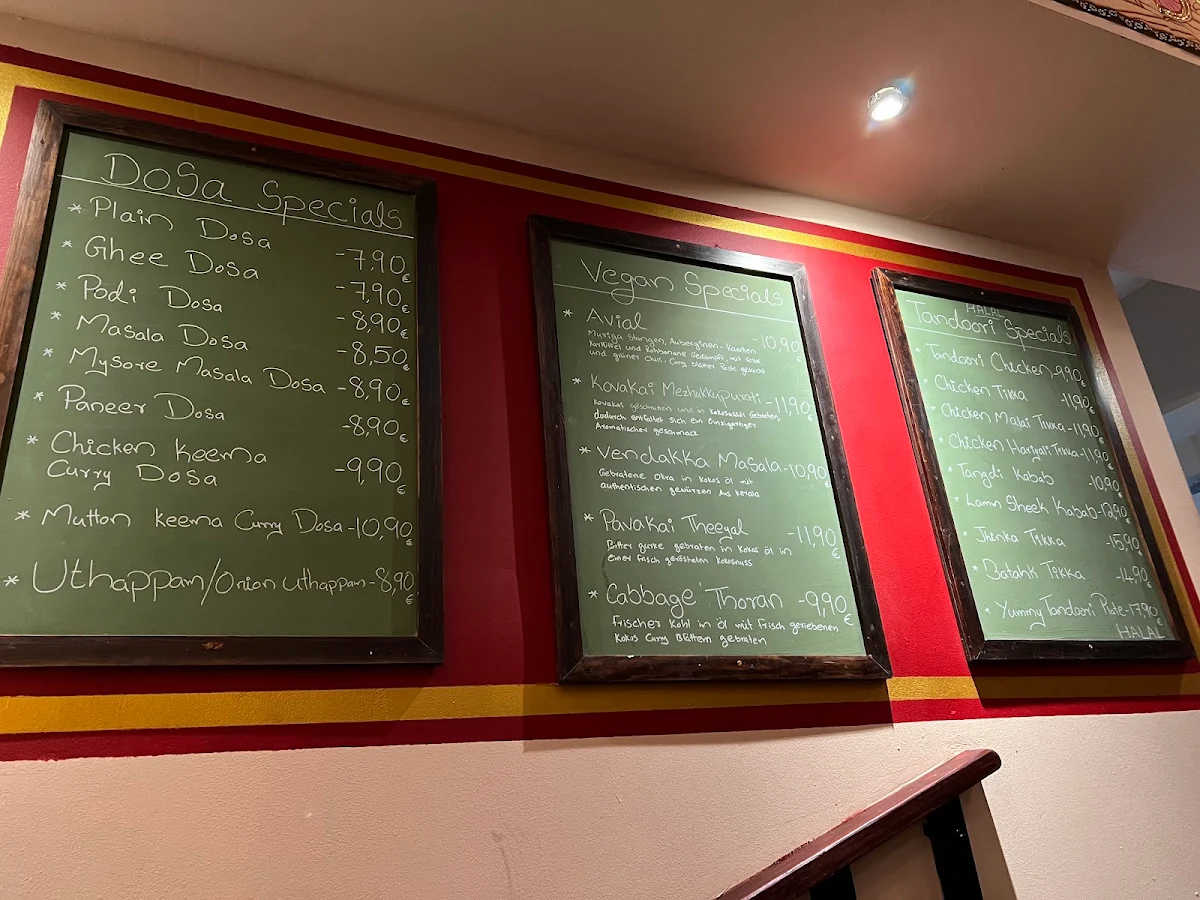 Dosa Specials
* Plain Dosa -7,90€
* Ghee Dosa -7,90€
* Podi Dosa -8,90€
* Masala Dosa -8,50€
* Mysore Masala Dosa -8,90€
* Paneer Dosa -8,90€
* Chicken keema
Curry Dosa -9,90€
* Mutton keema Curry Dosa -10,90€
* Uthappam/Onion uthappam -8,90€
Vegan Specials
* Avial -10,90€
Muriga Stangen, Auberginen- Karotten
Kartoffel und Kochbanane Gedämpft mit Kokos,
und grüner Chili, Curry blätter Paste gekocht
* Kovakai Mezhukkupurati -11,90€
Kovakai geschnitten und in Kokosnussöl Gebraten,
dadurch entfaltet sich ein einzigartiger
Aromatischer geschmack
* Vendakka Masala -10,90€
Gebratene Okra in Kokos öl mit
authentischen gewürzen Aus Kerala
* Pavakai Theeyal -11,90€
Bitter gurke gebraten in Kokos öl in
einer frisch gerösteten Kokosnuss
* Cabbage Thoran -9,90€
Frischer Kohl in öl mit Frisch geriebenen
Kokos Curry Blättern gebraten
HALAL
Tandoori Specials
* Tandoori Chicken -9,90€
* Chicken Tikka -11,90€
* Chicken Malai Tikka -11,90€
* Chicken Hariyali Tikka -11,90€
* Tangdi Kabab -10,90€
* Lamn Sheek Kabab -12,90€
* Jhinka Tikka -15,90€
* Batahk Tikka -14,90€
* Yummy Tandoori Plate -17,90€
HALAL